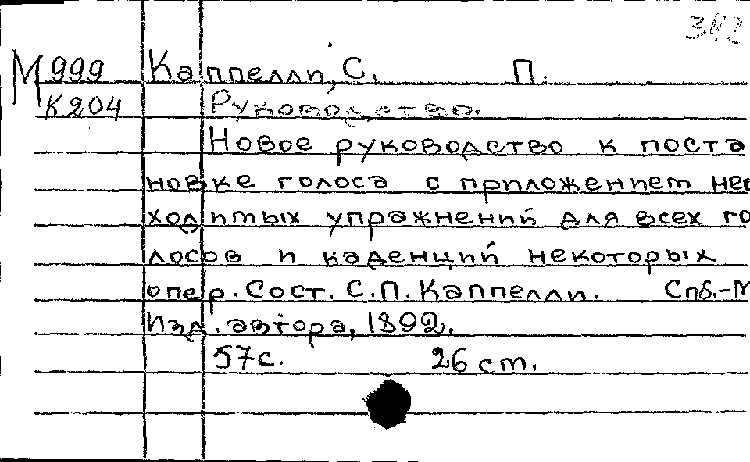 312
М 999 Каппелли, С. П.
К204 Руководство.
Новое руководство к поста
новке голоса с приложением нео
ходимых упражнений для всех го
лосов и каденций некоторых
опер. Сост. С.П. Каппелли. Спб.-М
Изд. автора, 1892.
57с. 26 см.